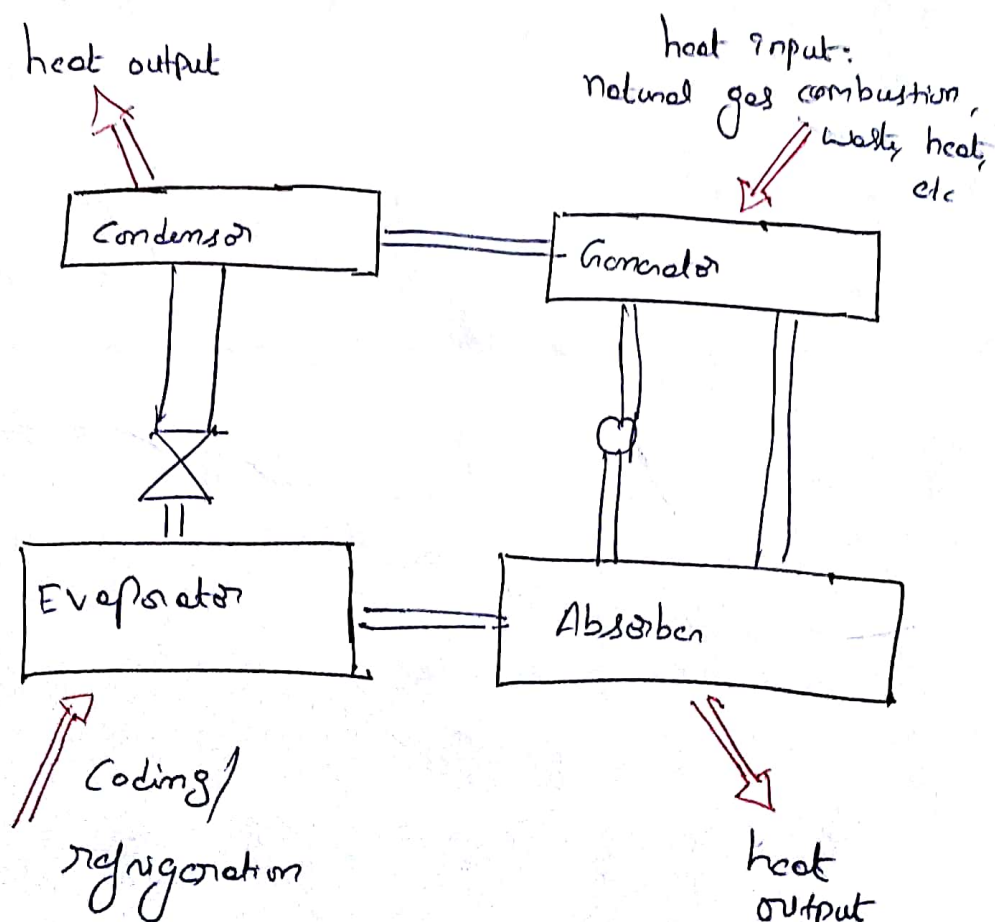 heat output
heat input:
natural gas combustion,
waste heat,
etc
Condensor
Generator
Evaporator
Absorber
Cooling/
refrigeration
heat
output